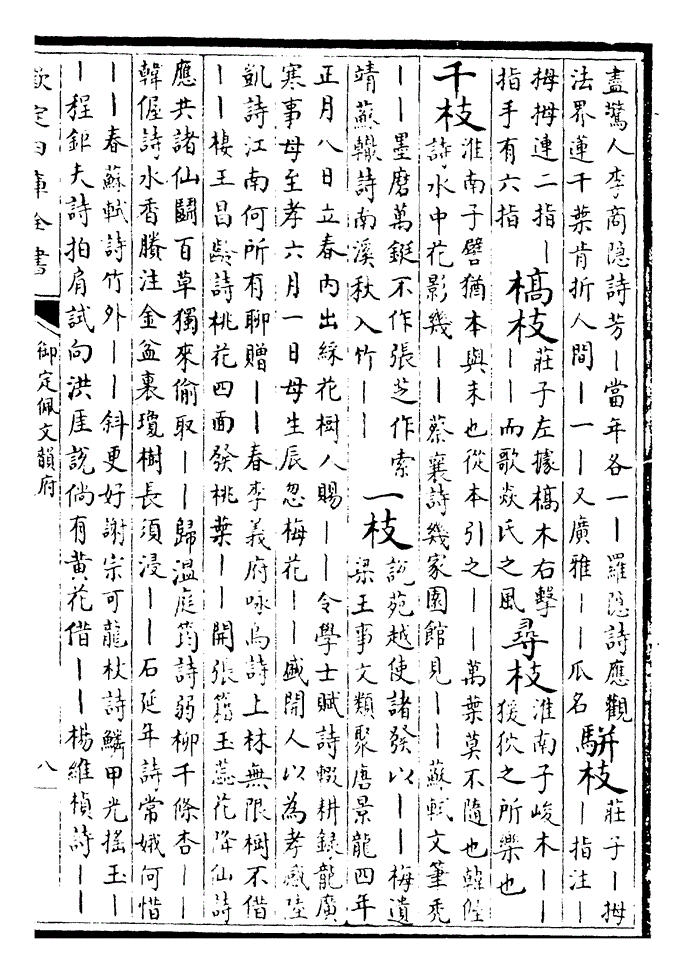 盡驚人李商隱詩芳丨當年各一丨羅隱詩應觀
法界蓮千葉肯折人間丨一丨又廣雅丨丨瓜名
駢枝
莊子丨拇
丨指注丨
拇拇連二指丨
指手有六指
槁枝
莊子左據槁木右擊
丨丨而歌焱氏之風
尋枝
淮南子峻木丨丨
猨狖之所樂也
千枝
淮南子譬猶本與末也從本引之丨丨萬葉莫不隨也韓偓
詩水中花影幾丨丨蔡襄詩幾家園館見丨丨蘇軾文筆禿
丨丨墨磨萬鋌不作張芝作索
靖蘇轍詩南溪秋入竹丨丨
一枝
說苑越使諸發以丨丨梅遺
梁王事文類聚唐景龍四年
正月八日立春內出綵花樹人賜丨丨令學士賦詩輟耕録龍廣
寒事母至孝六月一日母生辰忽梅花丨丨盛開人以為孝感陸
凱詩江南何所有聊贈丨丨春李義府咏烏詩上林無限樹不借
丨丨棲王昌齡詩桃花四面發桃葉丨丨開張籍玉蕊花降仙詩
應共諸仙鬬百草獨來偷取丨丨歸温庭筠詩弱柳千條杏丨丨
韓偓詩水香賸注金盆裏瓊樹長須浸丨丨石延年詩常娥何惜
丨丨春蘇軾詩竹外丨丨斜更好謝宗可龍杖詩鱗甲光搖玉丨
丨程鉅夫詩拍肩試向洪厓說倘有黃花借丨丨楊維楨詩丨丨
欽定四庫全書
御定佩文韻府
八